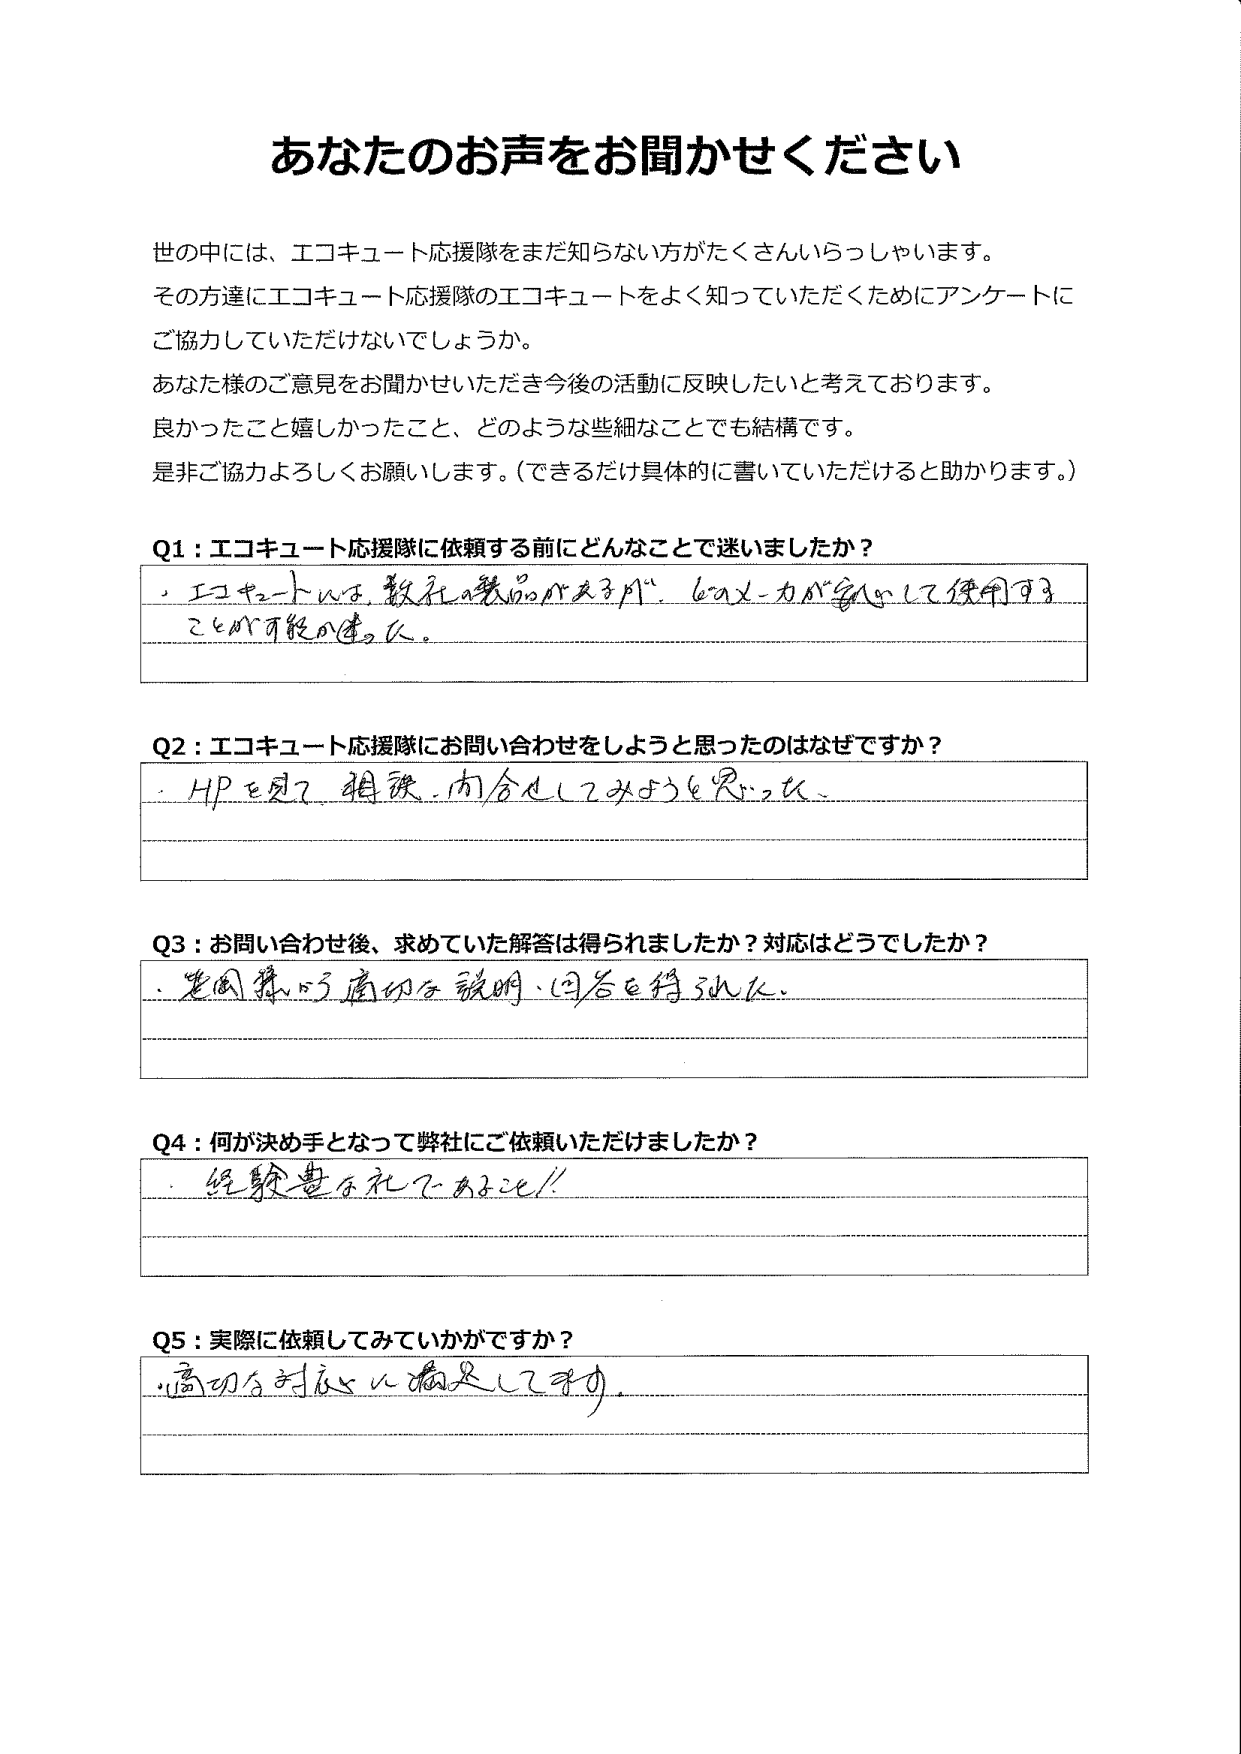 あなたのお声をお聞かせください
世の中には、エコキュート応援隊をまだ知らない方がたくさんいらっしゃいます。
その方達にエコキュート応援隊のエコキュートをよく知っていただくためにアンケートに
ご協力していただけないでしょうか。
あなた様のご意見をお聞かせいただき今後の活動に反映したいと考えております。
良かったこと嬉しかったこと、どのような些細なことでも結構です。
是非ご協力よろしくお願いします。（できるだけ具体的に書いていただけると助かります。）
Q1：エコキュート応援隊に依頼する前にどんなことで迷いましたか？
・エコキュートには、数社の製品があるが、どのメーカが安心して使用する
ことが可能か迷った。
Q2：エコキュート応援隊にお問い合わせをしようと思ったのはなぜですか？
・HPを見て、相談、問合せしてみようと思った、
Q3：お問い合わせ後、求めていた解答は得られましたか？対応はどうでしたか？
・様から適切な説明、回答を得られた。
Q4：何が決め手となって弊社にご依頼いただけましたか？
・経験豊な社であること!!
Q5：実際に依頼してみていかがですか？
・適切な対応に満足してます。